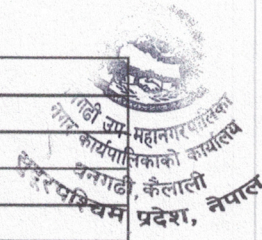 उप-महानगरपालिका
नगर कार्यपालिकाको कार्यालय
धनगढी, कैलाली
सुदूरपश्चिम प्रदेश, नेपाल